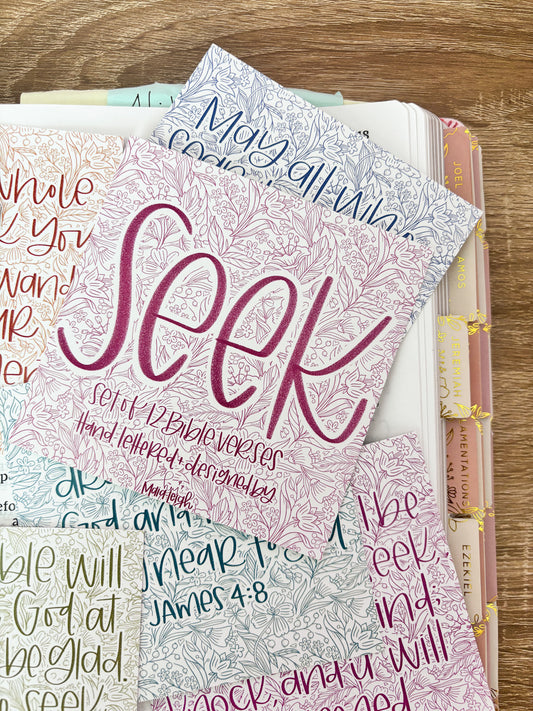 May all who
18
whole
k you
wand
ner
seek
set of 12 Bible verses
Hand lettered + designed by
JOEL
AMOS
JEREMIAH
LAMENTATIONS
EZEKIEL
God and
near to
JAMES 4:8
ible will
God at
be glad.
seek
l be
seek,
ind;
knock, and u will